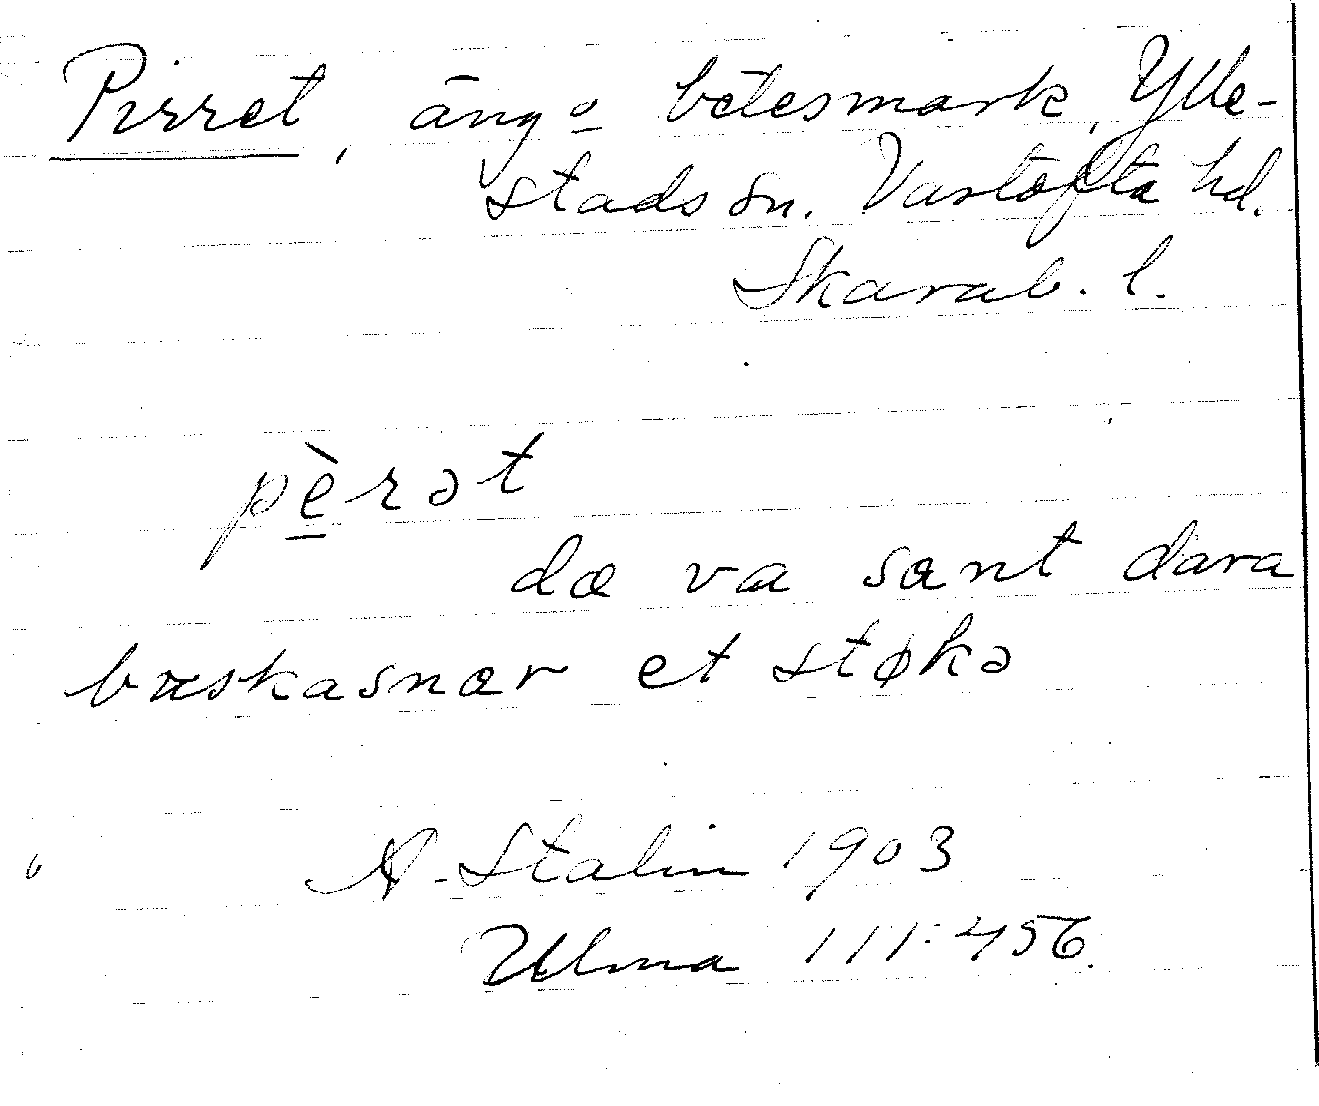 Pirret, äng o betesmark, Ylle-
stads sn. Vartofta hd.
Skarab. l.
pèrət
dæ va sant dara
bæskasnær et støkə
A. Stalin 1903
Ulma 111:456.